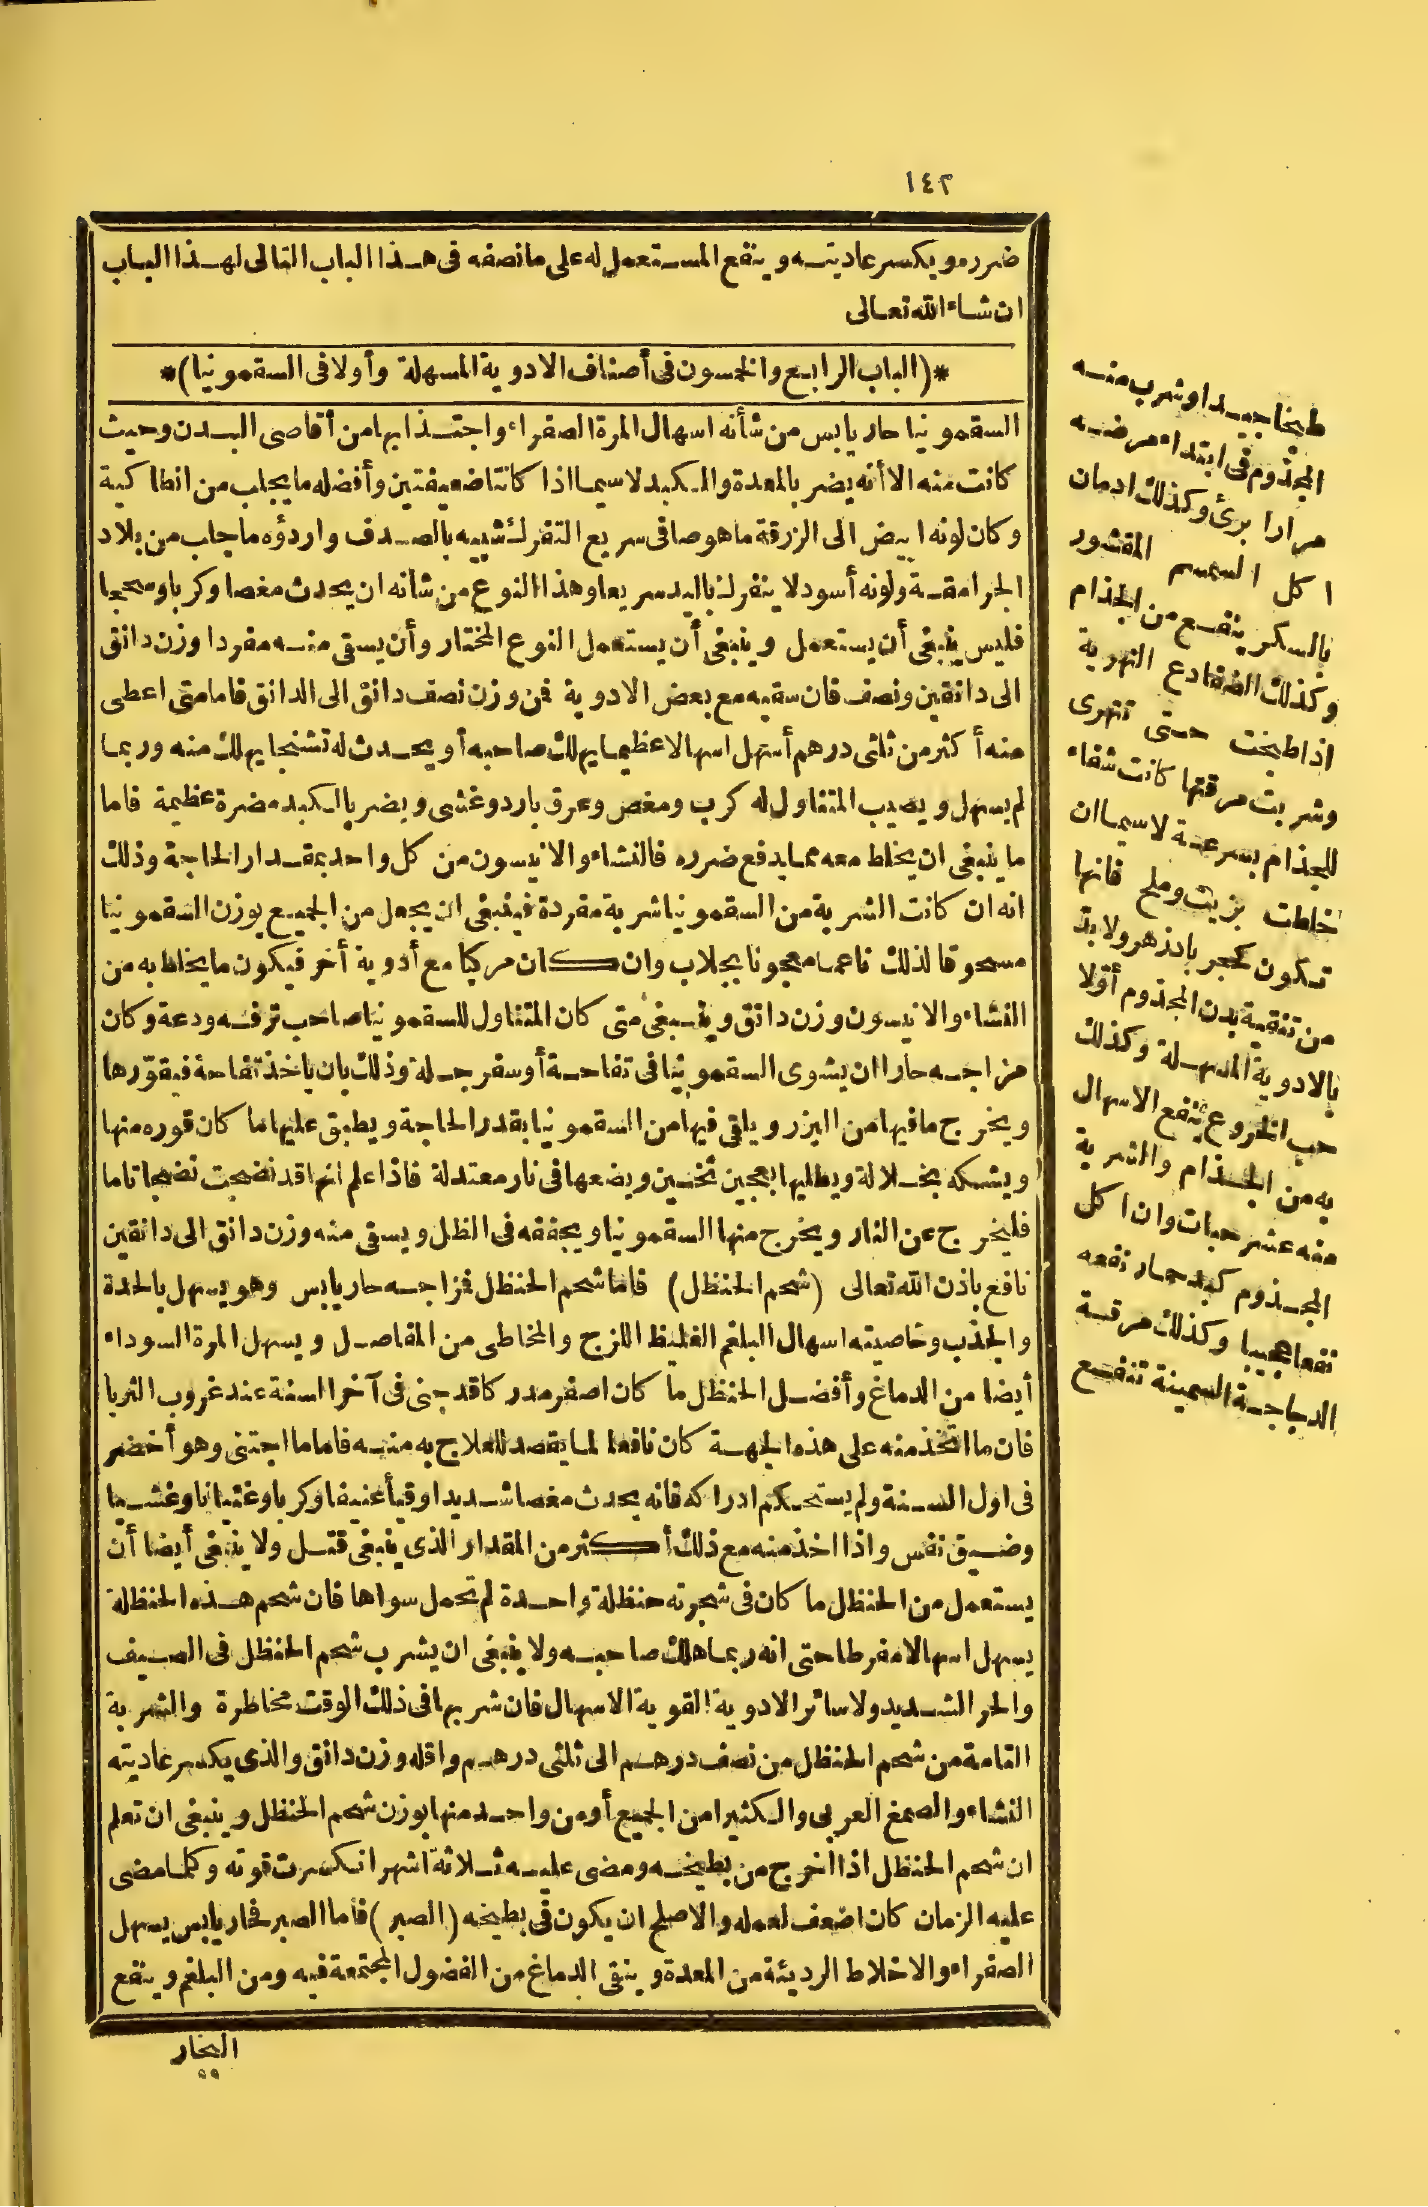 ١٤٢
ضرره ويكسر عاديته وينفع المستعمل له على ما نصفه فى هذا الباب التالى لهذا الباب
ان شاء الله تعالى
*(الباب الرابع والخمسون فى أصناف الادوية المسهلة وأولا فى السقمونيا)*
السقمونيا حار يابس من شأنه اسهال المرة الصفراء واجتذابها من أقاصى البدن وحيث
كانت منه الا أنه يضر بالمعدة والكبد لاسيما اذا كانتا ضعيفتين وأفضله ما يجلب من انطاكية
وكان لونه ابيض الى الزرقة ما هو صافى سريع التفرك شبيه بالصدف واردؤه ما جلب من بلاد
الجرامقة ولونه أسود لا ينفرك باليد سريعا وهذا النوع من شأنه ان يحدث مغصا وكربا وسحجا
فليس ينبغى أن يستعمل وينبغى أن يستعمل النوع المختار وأن يسقى منه مفردا وزن دانق
الى دانقين ونصف فان سقيه مع بعض الادوية فمن وزن نصف دانق الى الدانق فاما متى اعطى
منه أكثر من ثلثى درهم أسهل اسهالا عظيما يهلك صاحبه أو يحدث له تشنجا يهلك منه وربما
لم يسهل ويصيب المتناول له كرب ومغص وعرق بارد وغشى ويضر بالكبد مضرة عظيمة فاما
ما ينبغى ان يخلط معه مما يدفع ضرره فالنشاء والانيسون من كل واحد بمقدار الحاجة وذلك
انه ان كانت الشربة من السقمونيا شربة مفردة فينبغى ان يجعل من الجميع بوزن السقمونيا
مسحوقا لذلك ناعما معجونا بجلاب وان كان مركبا مع أدوية أخر فيكون ما يخلط به من
النشاء والانيسون وزن دانق وينبغى متى كان المتناول للسقمونيا صاحب ترفه ودعة وكان
مزاجه حارا ان يشوى السقمونيا فى تفاحة أو سفرجلة وذلك بان ياخذ تفاحة فيقوّرها
ويخرج ما فيها من البزر ويلقى فيها من السقمونيا بقدر الحاجة ويطبق عليها ما كان قوره منها
ويشكه بخلالة ويطليها بعجين ثخين ويضعها فى نار معتدلة فاذا علم انها قد نضجت نضجا تاما
فليخرج عن النار ويخرج منها السقمونيا ويجففه فى الظل ويسقى منه وزن دانق الى دانقين
نافع باذن الله تعالى (شحم الحنظل) فاما شحم الحنظل فمزاجه حار يابس وهو يسهل بالحدة
والجذب وخاصيته اسهال البلغم الغليظ اللزج والمخاطى من المفاصل ويسهل المرة السوداء
أيضا من الدماغ وأفضل الحنظل ما كان اصفر مدركا قد جنى فى آخر السنة عند غروب الثريا
فان ما اتخذ منه على هذه الجهة كان نافعا لما يقصد للعلاج به منه فاما ما اجتنى وهو أخضر
فى اول السنة ولم يستحكم ادراكه فانه يحدث مغصا شديدا وقيأ عنيفا وكربا وغثيانا وغشيا
وضيق نفس واذا اخذ منه مع ذلك أكثر من المقدار الذى ينبغى قتل ولا ينبغى أيضا أن
يستعمل من الحنظل ما كان فى شجرته حنظلة واحدة لم تحمل سواها فان شحم هذه الحنظلة
يسهل اسهالا مفرطا حتى انه ربما هلك صاحبه ولا ينبغى ان يشرب شحم الحنظل فى الصيف
والحر الشديد ولا سائر الادوية القوية الاسهال فان شربها فى ذلك الوقت مخاطرة والشربة
التامة من شحم الحنظل من نصف درهم الى ثلثى درهم واقله وزن دانق والذى يكسر عاديته
النشاء والصمغ العربى والكثيرا من الجميع أو من واحد منها بوزن شحم الحنظل وينبغى ان تعلم
ان شحم الحنظل اذا اخرج من بطيخه ومضى عليه ثلاثة اشهر انكسرت قوته وكلما مضى
عليه الزمان كان اضعف لعمله والاصلح ان يكون فى بطيخه (الصبر) فاما الصبر فحار يابس يسهل
الصفراء والاخلاط الرديئة من المعدة وينقى الدماغ من الفضول المجتمعة فيه ومن البلغم وينفع
البخار
طبخا جيدا وشرب منه
المجذوم فى ابتداء مرضه
مرارا برئ وكذلك ادمان
اكل السمسم المقشور
بالسكر ينفع من الجذام
وكذلك الضفادع النهرية
اذا طبخت حتى تتهرى
وشربت مرقتها كانت شفاء
للجذام بسرعة لاسيما ان
خلطت بزيت وملح فانها
تكون كحجر بادزهر ولا بدّ
من تنقية بدن المجذوم أوّلا
بالادوية المسهلة وكذلك
حب الخروع ينفع الاسهال
به من الجذام والشربة
منه عشر حبات وان اكل
المجذوم كبد حمار نفعه
نفعا عجيبا وكذلك مرقة
الدجاجة السمينة تنفع